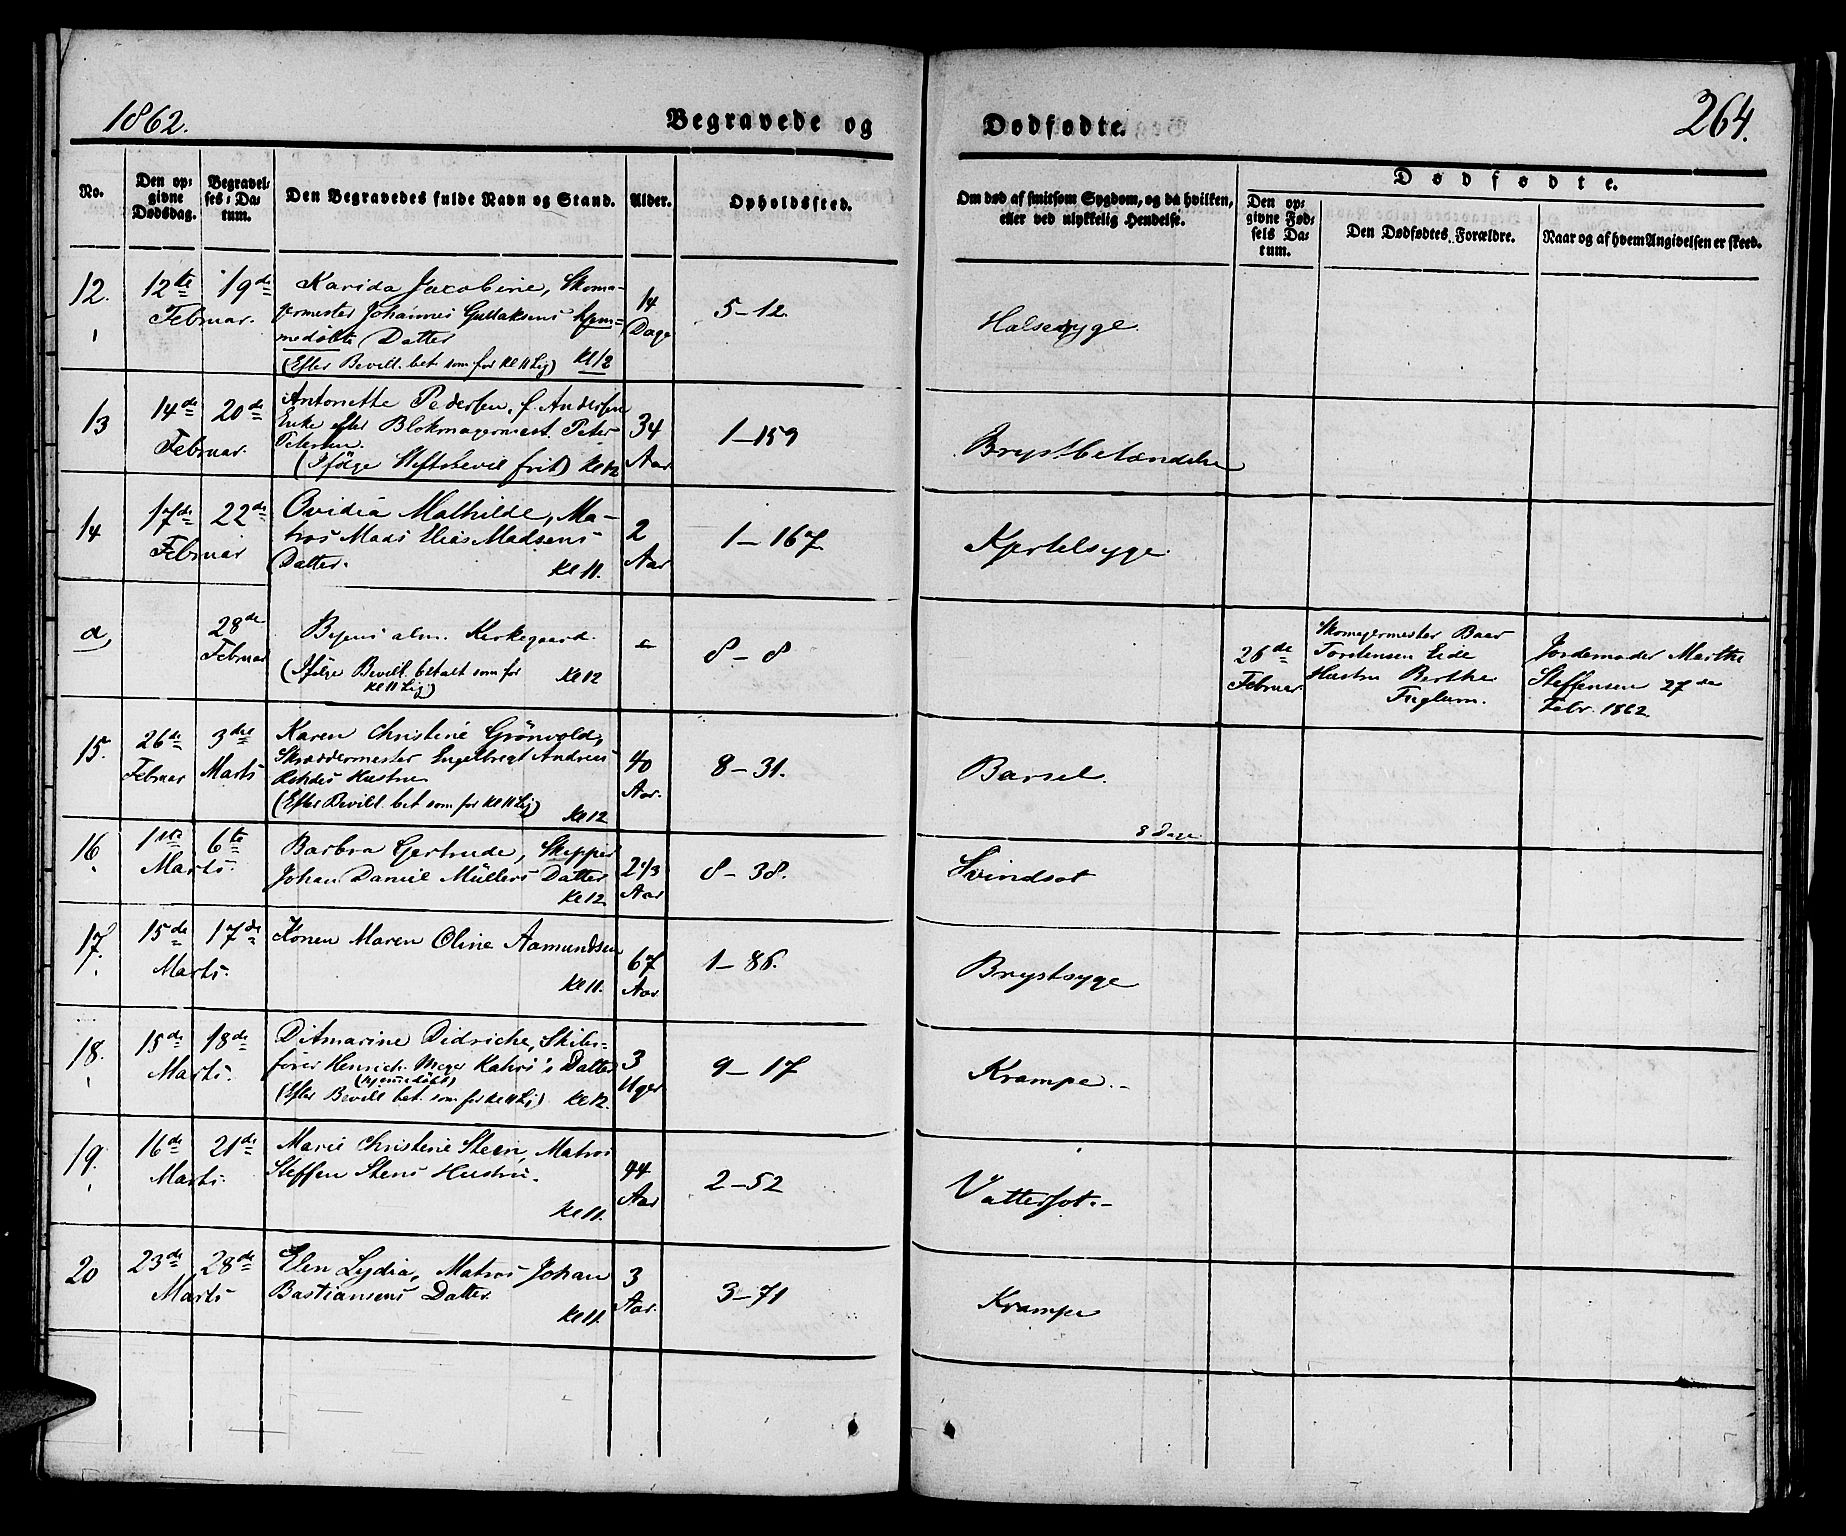 1862.
Begravede og Dødfødte.
264.
No.
Den opgivne Dødsdag.
Begravelses-Datum.
Den Begravedes fulde Navn og Stand.
Alder.
Opholdssted.
Om død af smitsom Sygdom, og da hvilken, eller ved ulykkelig Hendelse.
Dødfødte.
Den opgivne Fødsels Datum.
Den Dødfødtes Forældre.
Naar og af hvem Angivelsen er skeed.
12. 12te Februar. 19de Karida Jacobine, Skoma-
germester Johannes Gullaksens hjem-
medøbte Datter
(Efter Bevill. bet. som for Kl 11 Lig) Kl 12
14 Dage
5-12.
Halsesyge.
13 14de Februar. 20de Antonette Pedersen, f. Andersen
Enke efter Blokmagermest. Peter
Petersen.
(Ifølge Stiftsbevil frit) Kl 12
34 Aar
1-159
Brystbetændelse
14 17de Februar 22de Ovidia Mathilde, Ma-
tros Mads Elias Madsens
Datter. Kl 11.
2 Aar
1-167.
Kjertelsyge.
a, 28de Februar Byens alm. Kirkegaard.
(Ifølge Bevill. betalt som for Kl 12
Kl 11 Lig)
8-8
26de Februar.
Skomagermester Baar
Torstensen Eide
Hustru Berthe
Fuglum.
Jordemoder Marthe
Steffensen 27de
Febr. 1862.
15. 26de Februar 3die Marts Karen Christine Grönvold,
Skræddermester Engelbregt Andreas
Rohdes Hustru
(Efter Bevill. bet som for Kl 11 Lig)
Kl 12
40 Aar.
8-31.
Barsel.
8 Dage
16. 1ste Marts. 6te Barbra Gertrude, Skipper
Johan Daniel Müllers Datter
Kl 12
2 1/3 Aar
8-38.
Svindsot
17. 15de Marts. 17de Konen Maren Oline Aamundsen
Kl 11.
67 Aar.
1-86.
Brystsyge
18. 15de Marts. 18de Ditmarine Didriche, Skibs-
fører Henrich Meyer Kahrs's Datter
(hjemmedöbt)
(Efter Bevill bet. som for Kl 11 Lig) Kl 12.
3 Uger
9-17
Krampe.-
19. 16de Marts. 21de Marie Christine Steen, Matros
Steffen Stens Hustru.
Kl 11.
44 Aar
2-52
Vattersot.-
20 23de Marts 28de Elen Lydia, Matros Johan
Bastiansens Datter.
Kl 11.
3 Aar.
3-71
Krampe